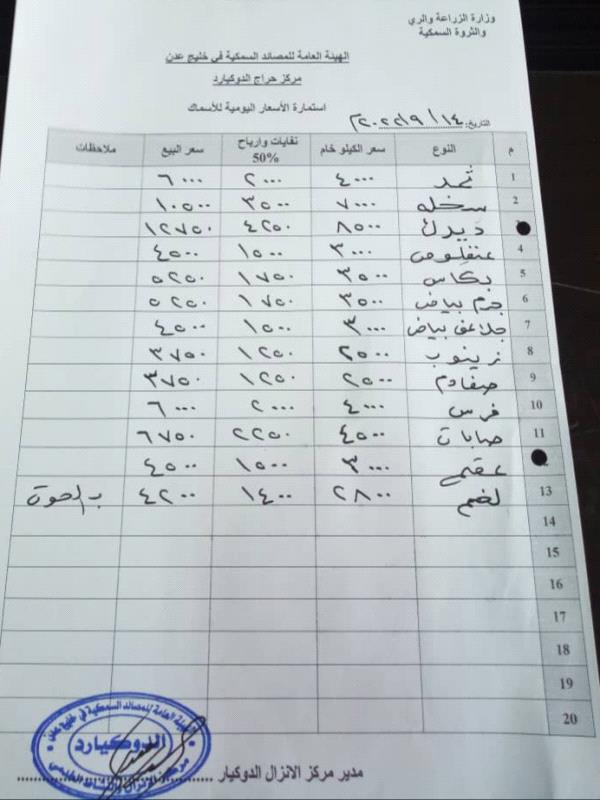 وزارة الزراعة والري
والثروة السمكية
الهيئة العامة للمصائد السمكية في خليج عدن
مركز حراج الدوكيارد
استمارة الأسعار اليومية للأسماك
التاريخ: ١٤/٩/٢٠٢٢م
م النوع سعر الكيلو خام نفايات وارباح 50% سعر البيع ملاحظات
1 ثمد ٤٠٠٠ ٢٠٠٠ ٦٠٠٠
2 سخله ٧٠٠٠ ٣٥٠٠ ١٠٥٠٠
ديرك ٨٥٠٠ ٤٢٥٠ ١٢٧٥٠
4 عنفلوص ٣٠٠٠ ١٥٠٠ ٤٥٠٠
5 بكاس ٣٥٠٠ ١٧٥٠ ٥٢٥٠
6 جرم بياض ٣٥٠٠ ١٧٥٠ ٥٢٥٠
7 جلاعف بياض ٣٠٠٠ ١٥٠٠ ٤٥٠٠
8 زينوب ٢٥٠٠ ١٢٥٠ ٣٧٥٠
9 صفادم ٢٥٠٠ ١٢٥٠ ٣٧٥٠
10 فرس ٤٠٠٠ ٢٠٠٠ ٦٠٠٠
11 صابات ٤٥٠٠ ٢٢٥٠ ٦٧٥٠
٣٠٠٠ ١٥٠٠ ٤٥٠٠
13 لخم ٢٨٠٠ ١٤٠٠ ٤٢٠٠ بالحوت
14
15
16
17
18
19
20
الهيئة العامة للمصائد السمكية في خليج عدن
الدوكيارد
مركز الانزال
مدير مركز الانزال الدوكيار